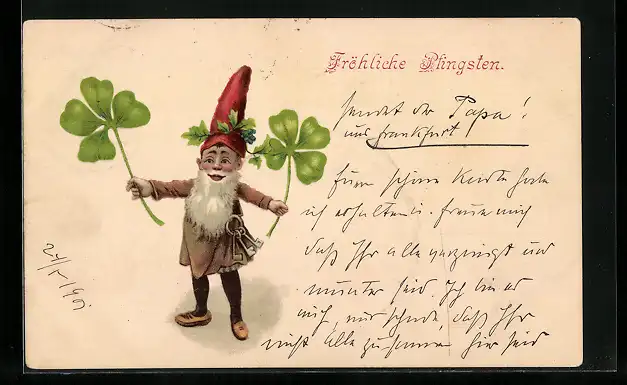 Fröhliche Pfingsten.
sendet der Papa!
aus Frankfurt
schöne Karte habe
ich erhalten u. freue mich
daß Ihr alle vergnügt und
munter seid. Ich bin es
auch, nur schade, daß Ihr
nicht alle zusammen hier seid
24/5 190